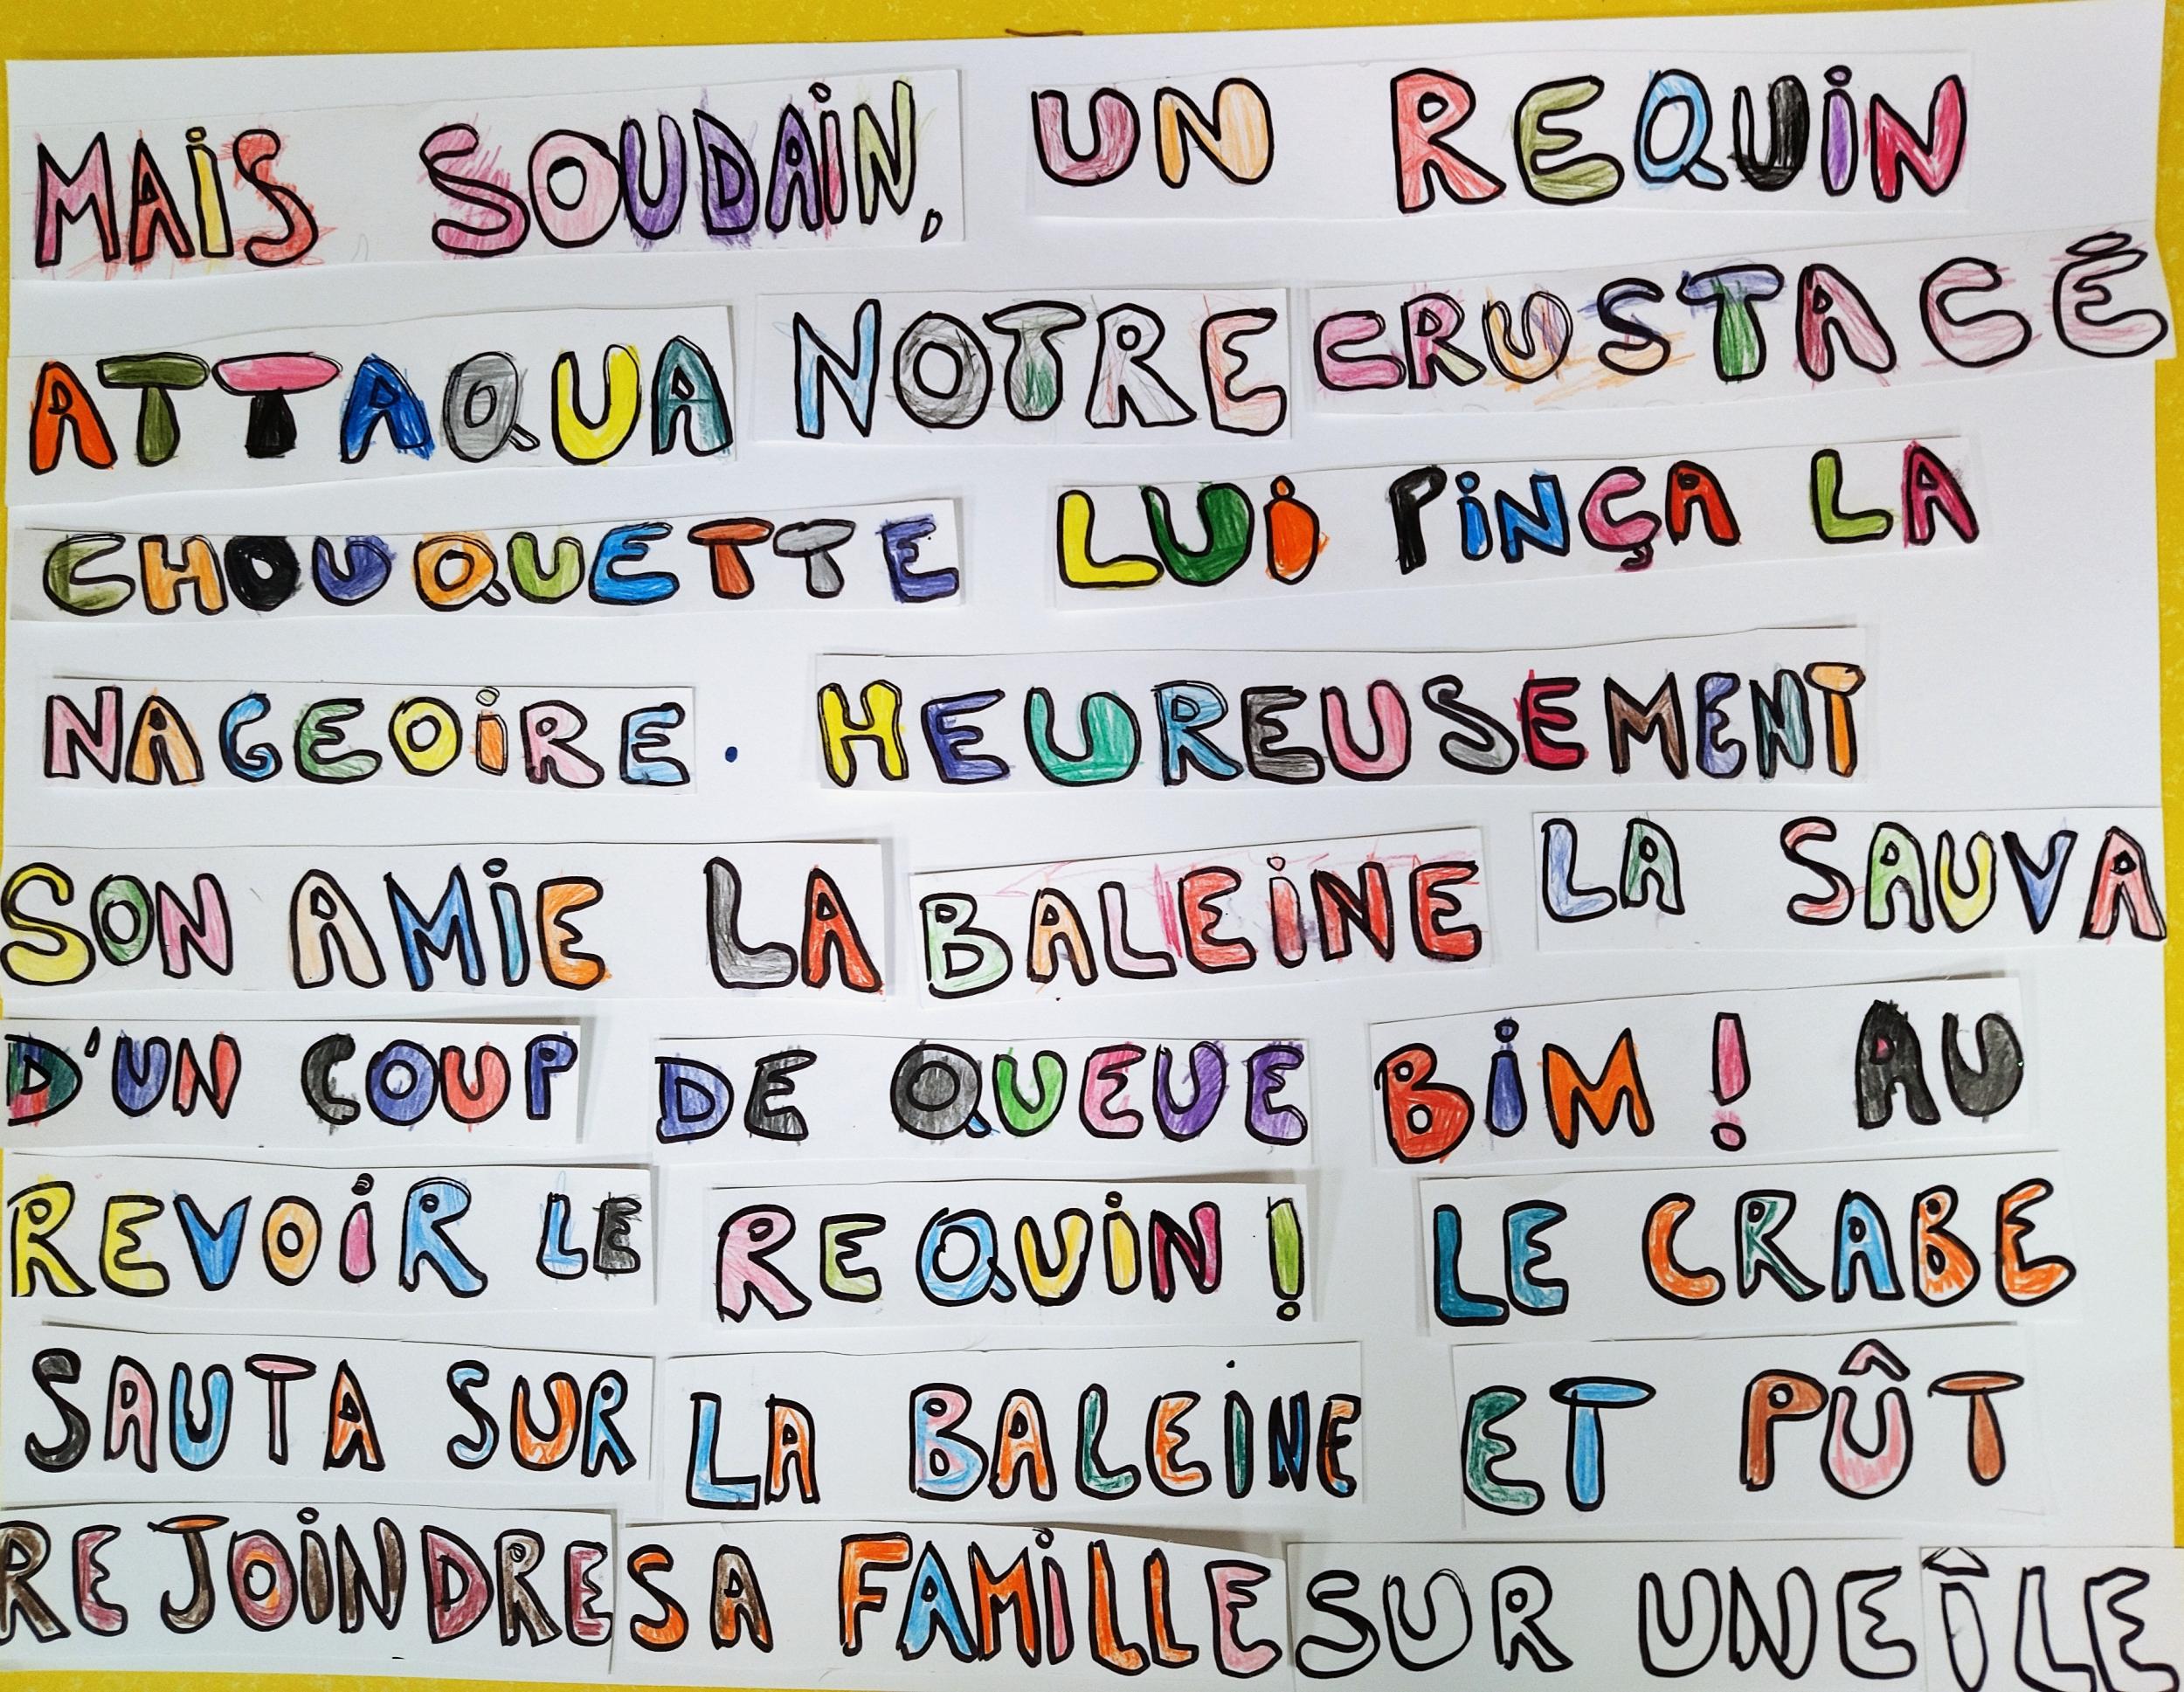 MAiS SOUDAiN, UN REQUiN
ATTAQUA NOTRE CRUSTACÉ
CHOUQUETTE LUi PiNÇA LA
NAGEOiRE. HEUREUSEMENT
SON AMiE LA BALEiNE LA SAUVA
D'UN COUP DE QUEUE BiM ! AU
REVOiR LE REQUiN ! LE CRABE
SAUTA SUR LA BALEiNE ET PÛT
REJOiNDRE SA FAMiLLE SUR UNE ÎLE